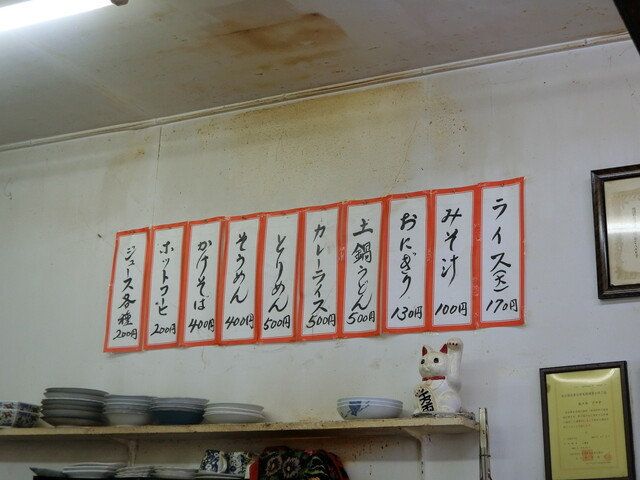 ライス(大) 170円
みそ汁 100円
おにぎり 130円
土鍋うどん 500円
カレーライス 500円
とりめん 500円
そうめん 400円
かけそば 400円
ホットコーヒー 200円
ジュース各種 200円